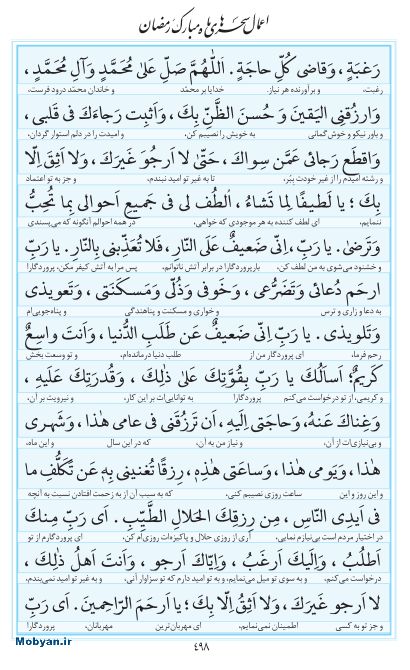 اعمال سحرهای ماه مبارک رمضان
رَغبَةٍ، وَقاضِیَ کُلِّ حاجَةٍ. اَللّٰهُمَّ صَلِّ عَلیٰ مُحَمَّدٍ وَآلِ مُحَمَّدٍ،
رغبت، و برآورنده هر نیاز. خدایا بر محمّد و خاندان محمّد درود فرست،
وَارزُقنِی الیَقینَ وَ حُسنَ الظَّنِّ بِکَ، وَاَثبِت رَجاءَکَ فی قَلبی،
و باور نیکو و خوش‌گمانی به خویش را نصیبم کن، و امیدت را در دلم استوار گردان،
وَاقطَع رَجائی عَمَّن سِواکَ، حَتّیٰ لا اَرجُوَ غَیرَکَ، وَلا اَثِقَ اِلّا
و رشته امیدم را از غیر خودت ببُر، تا به غیر تو امید نبندم، و جز به تو اعتماد
بِکَ؛ یا لَطیفًا لِما تَشاءُ، اُلطُف لی فی جَمیعِ اَحوالی بِما تُحِبُّ
ننمایم. ای لطف کننده به هر موجودی که خواهی، در همه احوالم آنگونه که می‌پسندی
وَتَرضیٰ. یا رَبِّ، اِنّی ضَعیفٌ عَلَی النّارِ، فَلا تُعَذِّبنی بِالنّارِ. یا رَبِّ
و خشنود می‌شوی به من لطف کن. پروردگارا در برابر آتش ناتوانم، پس مرا به آتش کیفر مکن. پروردگارا
ارحَم دُعائی وَتَضَرُّعی، وَخَوفی وَذُلّی وَمَسکَنَتی، وَتَعویذی
به دعا و زاری و ترس و خواری و مسکنت و پناهندگی و پناه‌جویی‌ام
وَتَلویذی. یا رَبِّ اِنّی ضَعیفٌ عَن طَلَبِ الدُّنیا، وَاَنتَ واسِعٌ
رحم فرما، ای پروردگار من از طلب دنیا درمانده‌ام، و تو وسعت بخش
کَریمٌ؛ اَساَلُکَ یا رَبِّ بِقُوَّتِکَ عَلیٰ ذٰلِکَ، وَقُدرَتِکَ عَلَیهِ،
و کریمی، از تو درخواست می‌کنم پروردگارا به توانایی‌ات بر این کار، و نیرویت بر آن،
وَغِناکَ عَنهُ، وَحاجَتی اِلَیهِ، اَن تَرزُقَنی فی عامی هٰذا، وَشَهری
و بی‌نیازی‌ات از آن، و نیاز من به آن، که در این سال و این ماه،
هٰذا، وَیَومی هٰذا، وَساعَتی هٰذِهِ، رِزقًا تُغنینی بِهِ عَن تَکَلُّفِ ما
و این روز و این ساعت روزی نصیبم کنی، که به سبب آن از به زحمت افتادن نسبت به آنچه
فی اَیدِی النّاسِ، مِن رِزقِکَ الحَلالِ الطَّیِّبِ. اَی رَبِّ مِنکَ
در اختیار مردم است بی‌نیازم نمایی، آری از روزی حلال و پاکیزه‌ات روزی‌ام کن. ای پروردگارم از تو
اَطلُبُ، وَاِلَیکَ اَرغَبُ، وَاِیّاکَ اَرجو، وَاَنتَ اَهلُ ذٰلِکَ،
درخواست می‌کنم، و به سوی تو میل می‌نمایم، و به تو امید دارم که تو سزاوار آنی، و به غیر تو امید نمی‌بندم،
لا اَرجو غَیرَکَ، وَلا اَثِقُ اِلّا بِکَ؛ یا اَرحَمَ الرّاحِمینَ. اَی رَبِّ
و جز تو به کسی اطمینان نمی‌نمایم، ای مهربان‌ترین مهربانان. پروردگارا
۴۹۸
Mobyan.ir